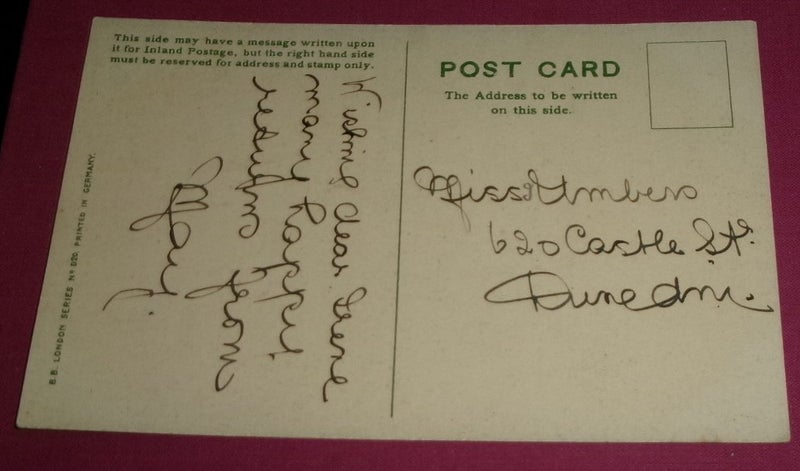 This side may have a message written upon
it for Inland Postage, but the right hand side
must be reserved for address and stamp only.
Wishing dear Irene
many happy
returns from
May.
B.B. LONDON SERIES Nº 820 PRINTED IN GERMANY.
POST CARD
The Address to be written
on this side.
Miss Umbers
620 Castle St.
Dunedin.